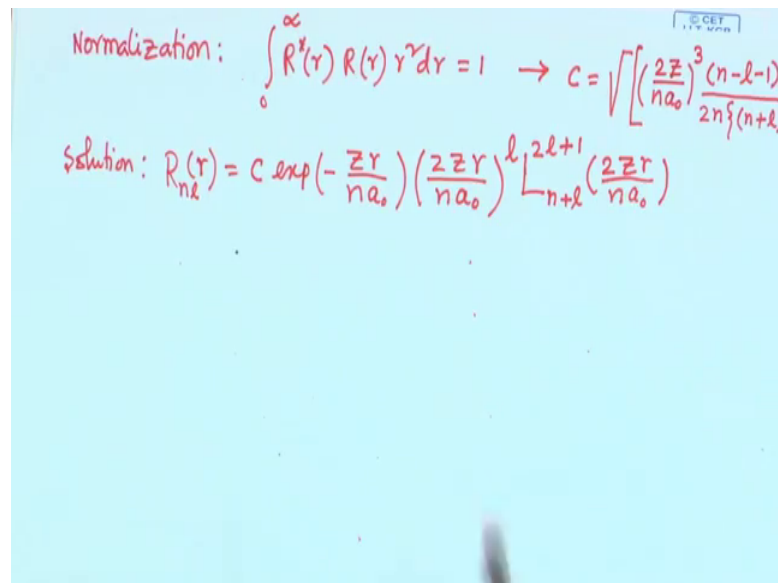 © CET
Normalization: ∫₀^∝ R*(r) R(r) r² dr = 1 → C = √[(2Z/na₀)³ (n-l-1)/2n{(n+l
Solution: R_nl(r) = C exp(-Zr/na₀) (2Zr/na₀)^l L_{n+l}^{2l+1} (2Zr/na₀)